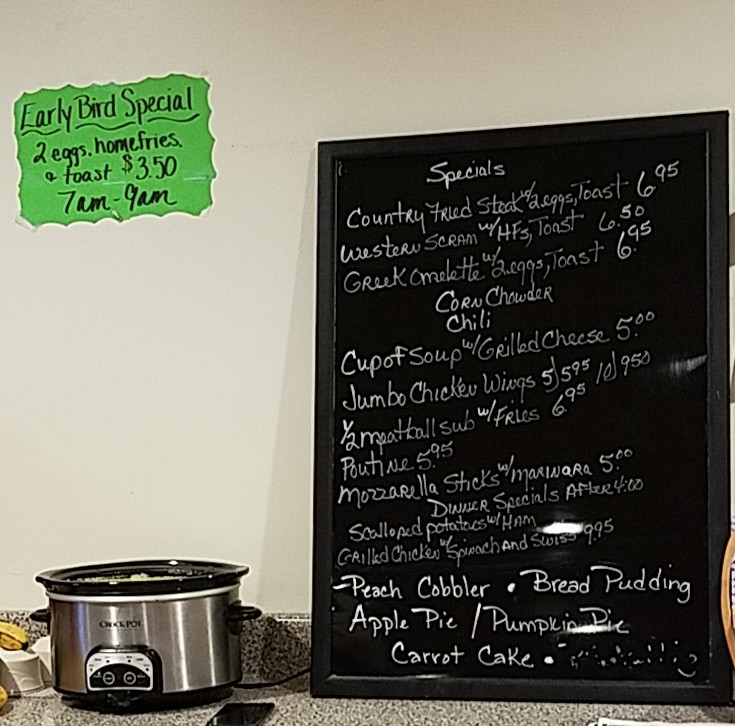 Early Bird Special
2 eggs, homefries,
& toast $3.50
7am - 9am
Specials
Country Fried Steak w/ 2 eggs, Toast 6.95
Western Scram w/ HFs, Toast 6.50
Greek Omelette w/ 2 eggs, Toast 6.95
Corn Chowder
Chili
Cup of Soup w/ Grilled Cheese 5.00
Jumbo Chicken Wings 5/5.95 10/9.50
1/2 meatball sub w/ Fries 6.95
Poutine 5.95
Mozzarella Sticks w/ Marinara 5.00
Dinner Specials After 4:00
Scalloped potatoes w/ Ham
Grilled Chicken w/ Spinach And Swiss 9.95
-Peach Cobbler • Bread Pudding
Apple Pie / Pumpkin Pie
Carrot Cake •
CROCKPOT